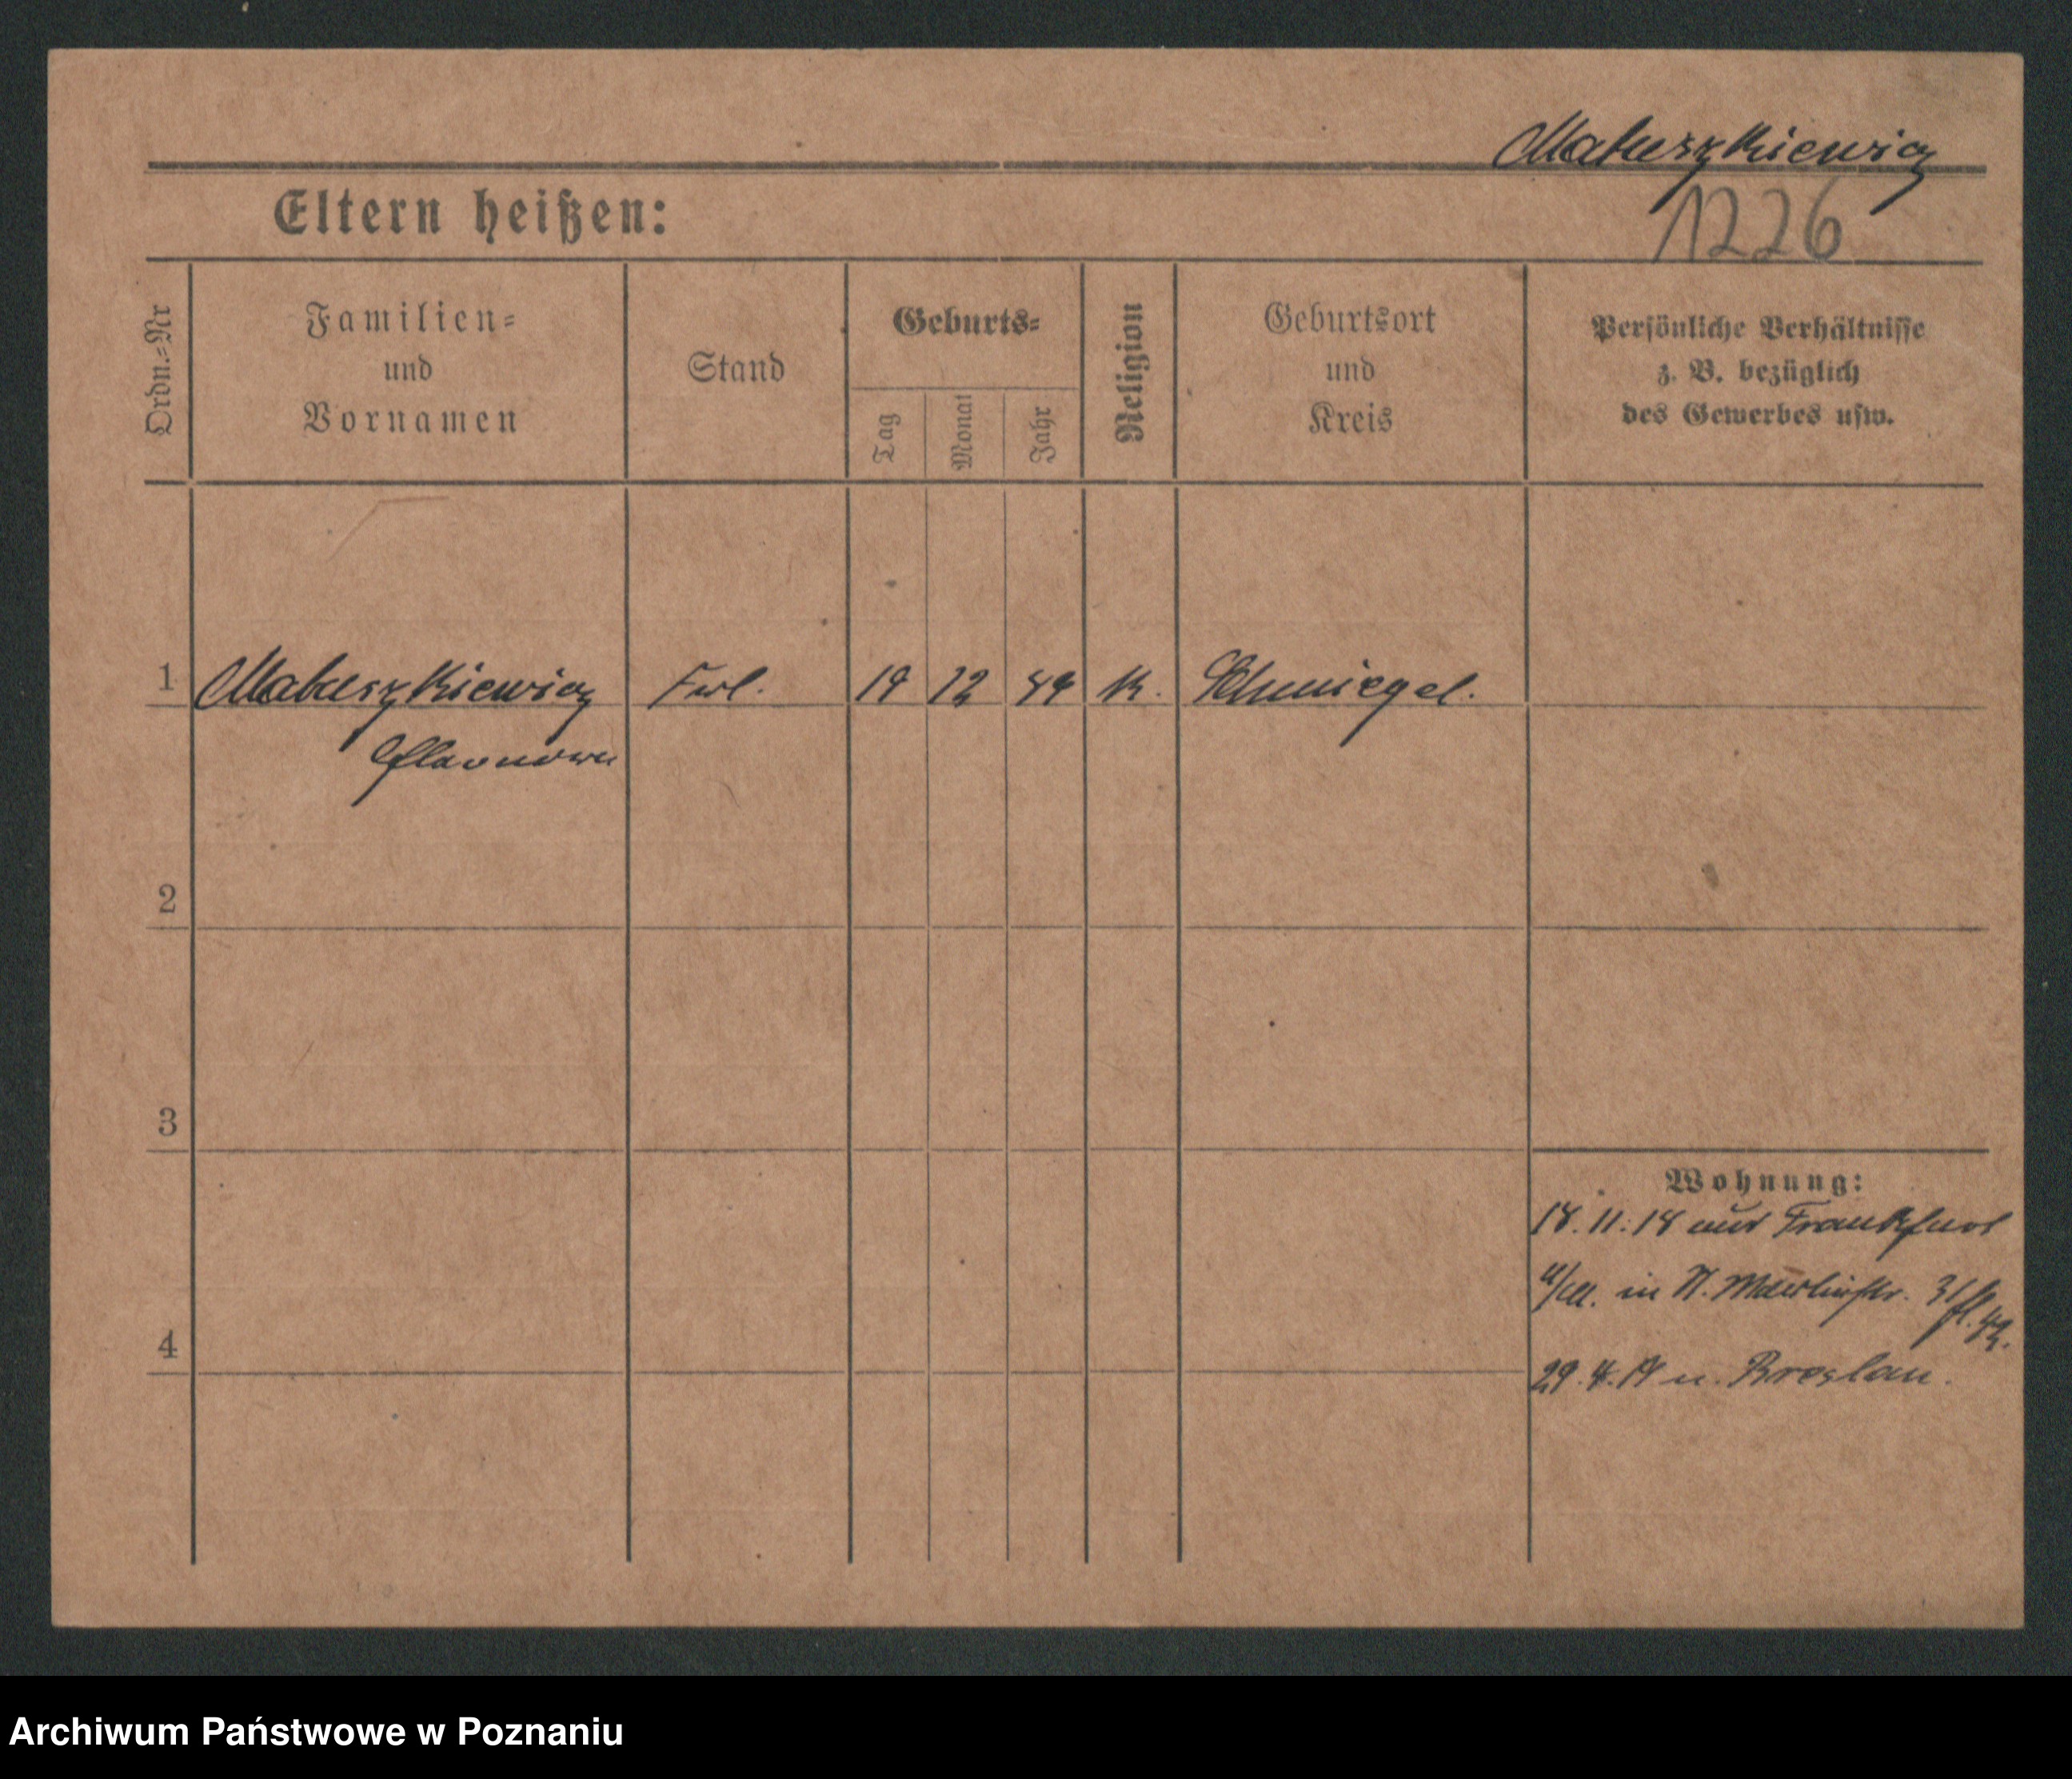 Matuszkiewicz
1226
Eltern heißen:
Ordn.-Nr
Familien-
und
Vornamen
Stand
Geburts-
Tag
Monat
Jahr
Religion
Geburtsort
und
Kreis
Persönliche Verhältnisse
z. B. bezüglich
des Gewerbes usw.
1 Matuszkiewicz Frl. 19 12 K. Schmiegel.
2
3
4
Wohnung:
18.11.18 aus Frankfurt
in
n. Breslau.
Archiwum Państwowe w Poznaniu